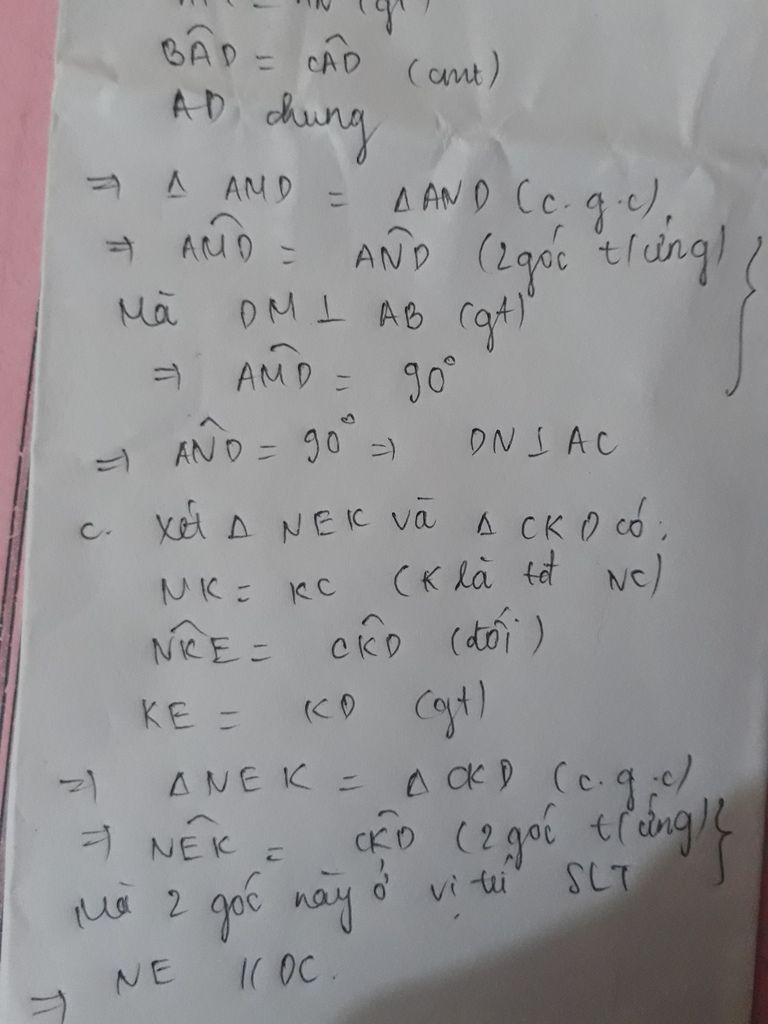 = AN (gt)
BÂD = CÂD (cmt)
AD chung
=> Δ AMD = Δ AND (c.g.c)
=> AM̂D = AN̂D (2 góc t/ứng)
Mà DM ⊥ AB (gt)
=> AM̂D = 90°
=> AN̂D = 90° => DN ⊥ AC
c. Xét Δ NEK và Δ CKD có:
NK = KC (K là tđ NC)
NK̂E = CK̂D (đối)
KE = KD (gt)
=> Δ NEK = Δ CKD (c.g.c)
=> NÊK = CK̂D (2 góc t/ứng)
Mà 2 góc này ở vị trí SLT
=> NE // DC.